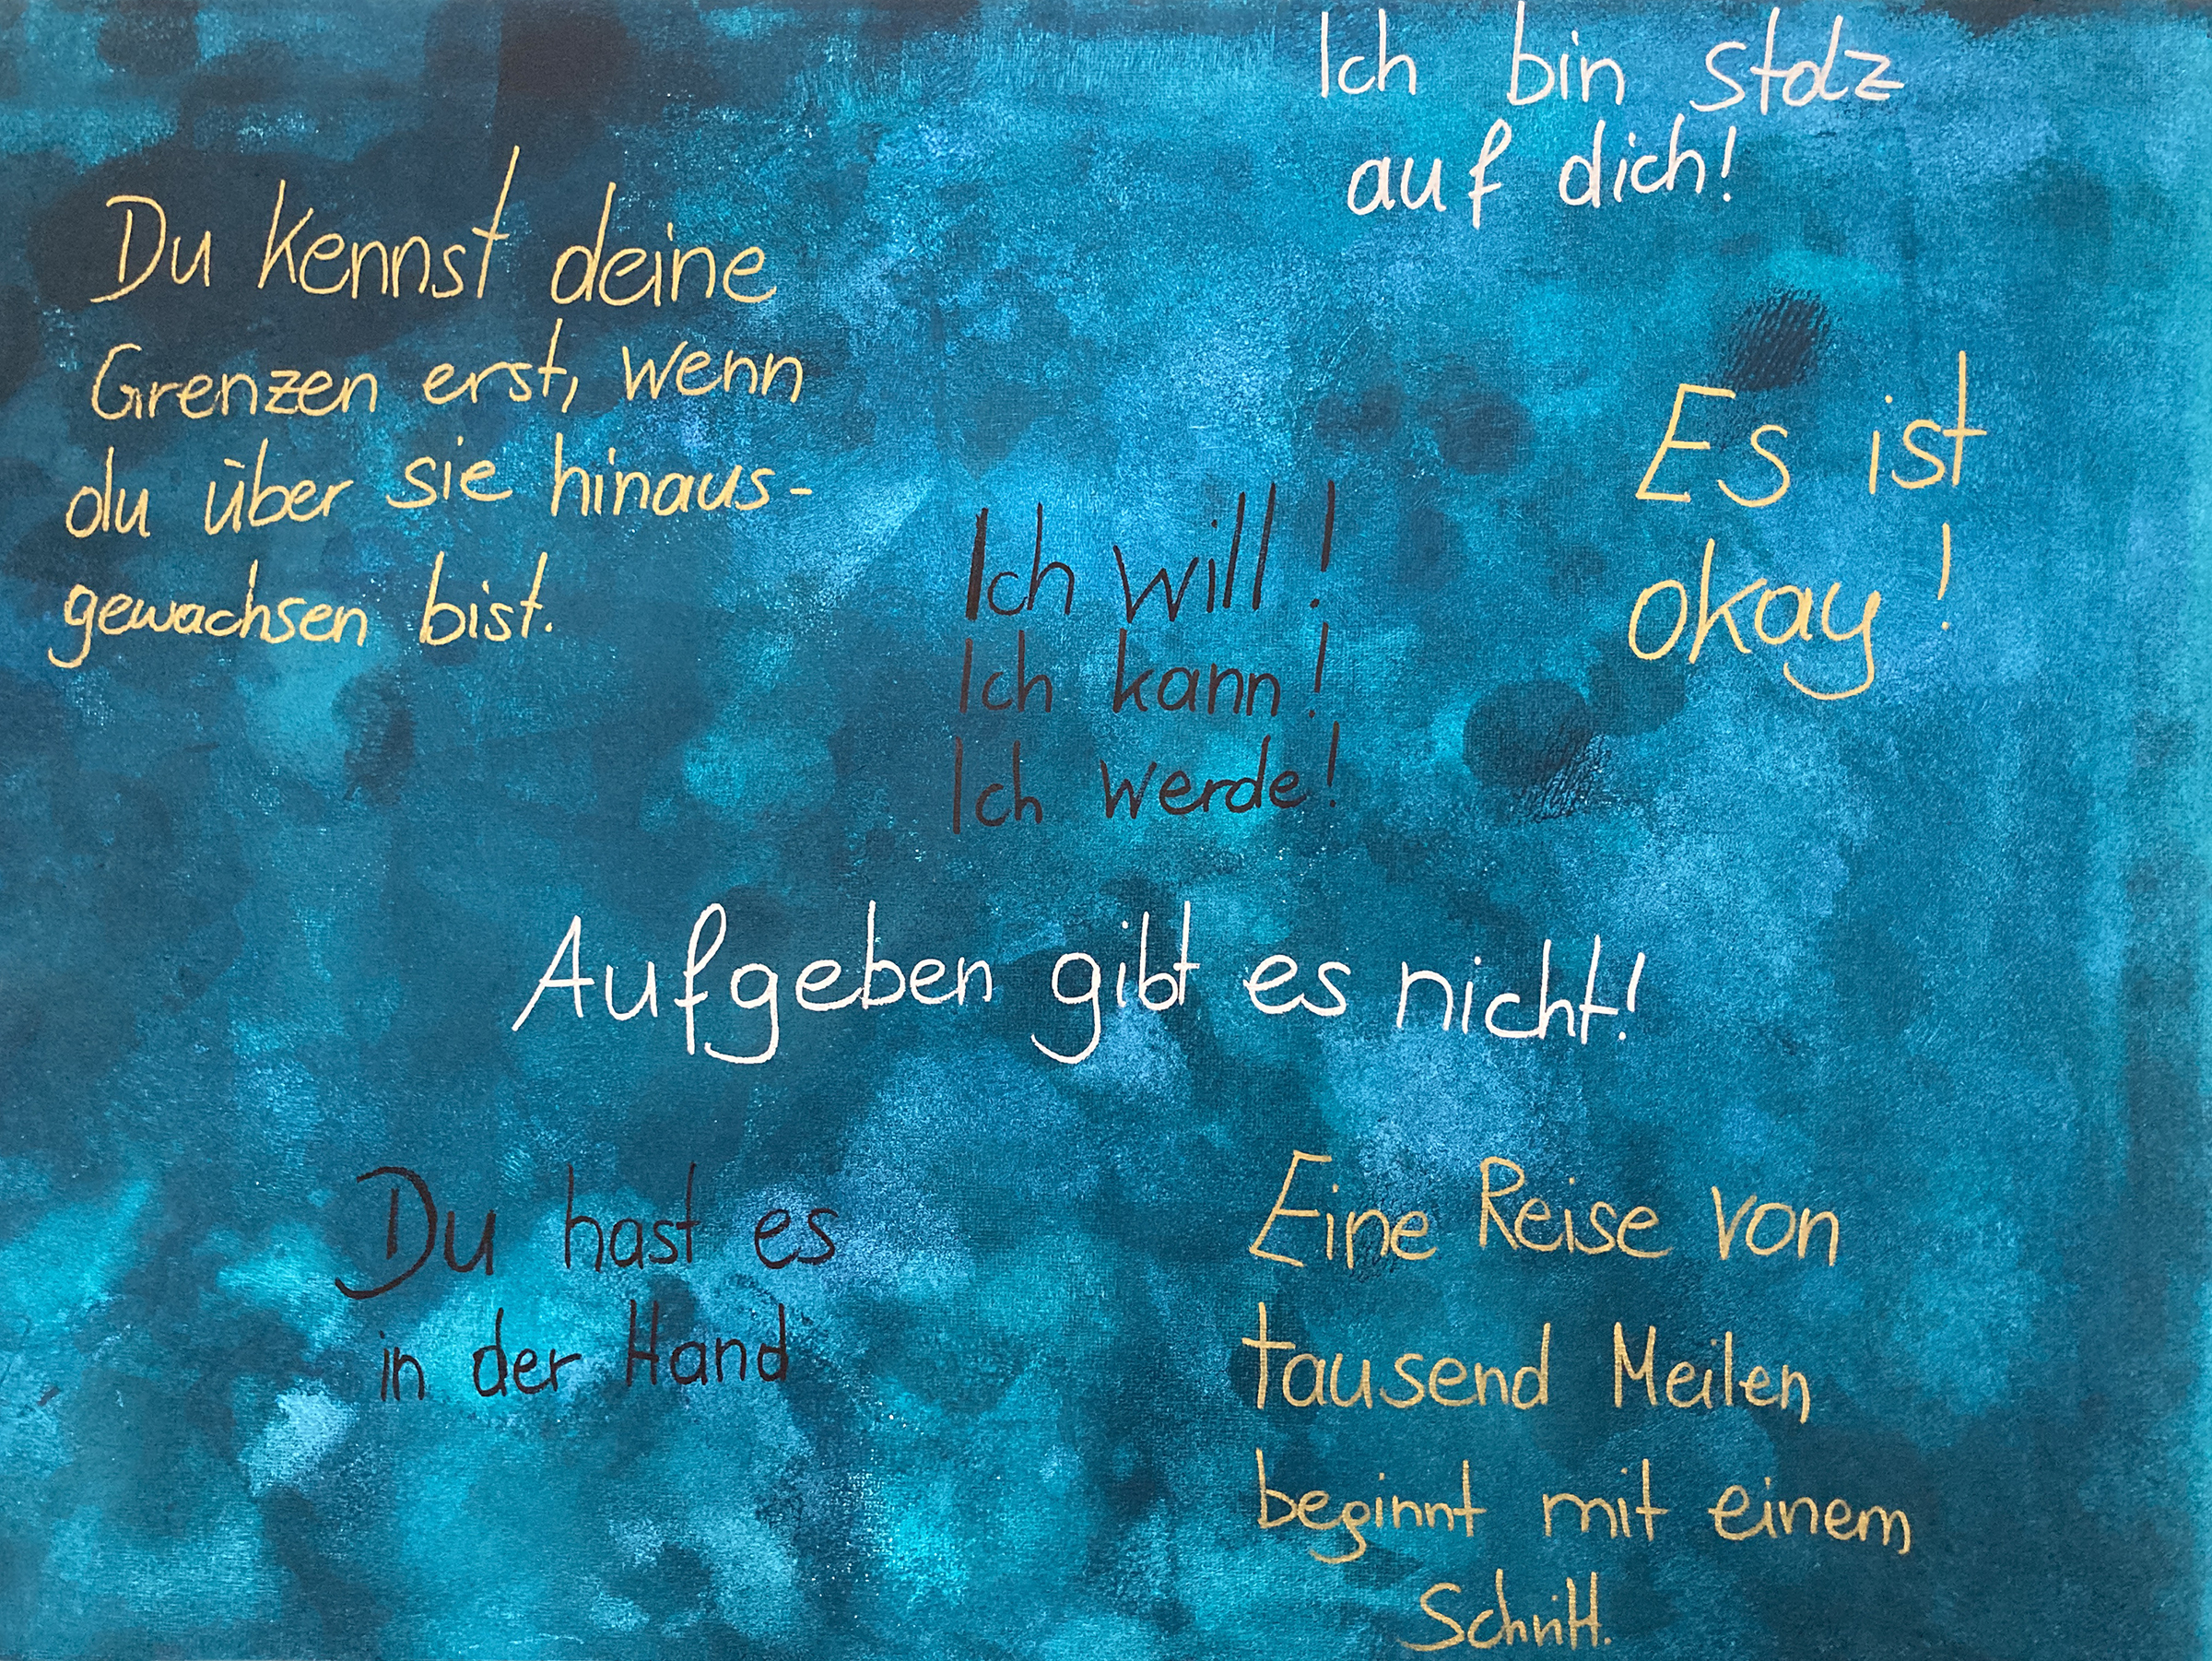 Ich bin stolz
auf dich!
Du kennst deine
Grenzen erst, wenn
du über sie hinaus-
gewachsen bist.
Es ist
okay!
Ich will!
Ich kann!
Ich werde!
Aufgeben gibt es nicht!
Du hast es
in der Hand
Eine Reise von
tausend Meilen
beginnt mit einem
Schritt.